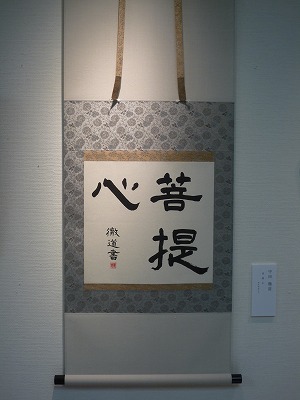 菩提
心
徹道書